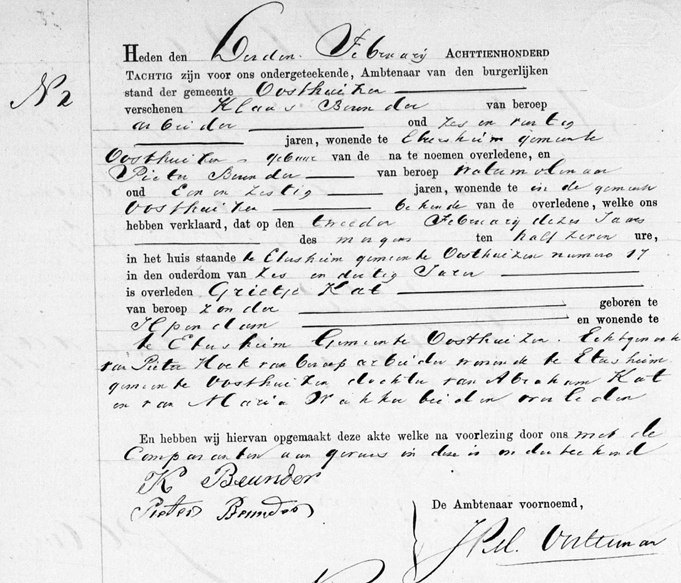 Heden den Derden February ACHTTIENHONDERD
TACHTIG zijn voor ons ondergeteekende, Ambtenaar van den burgerlijken
No 2
stand der gemeente Oosthuizen
verschenen Klaas Beunder van beroep
arbeider oud zes en veertig
jaren, wonende te Etersheim gemeente
Oosthuizen gebuur van de na te noemen overledene, en
Pieter Beunder van beroep watermolenaar
oud Een en zestig jaren, wonende te in de gemeente
Oosthuizen bekende van de overledene, welke ons
hebben verklaard, dat op den tweeden February dezes Jaars
des morgens ten half zeven ure,
in het huis staande te Etersheim gemeente Oosthuizen numero 17
in den ouderdom van zes en dertig Jaren
is overleden Grietje Kat
van beroep zonder geboren te
Ilpendam en wonende te
te Etersheim Gemeente Oosthuizen. Echtgenoote
van Pieter Hoek van beroep arbeider wonende te Etersheim
gemeente Oosthuizen dochter van Abraham Kat
en van Maria Bakker beiden overleden
En hebben wij hiervan opgemaakt deze akte welke na voorlezing door ons met de
Comparanten aan gevers in deze is onderteekend
K Beunder
Pieter Beunder
De Ambtenaar voornoemd,